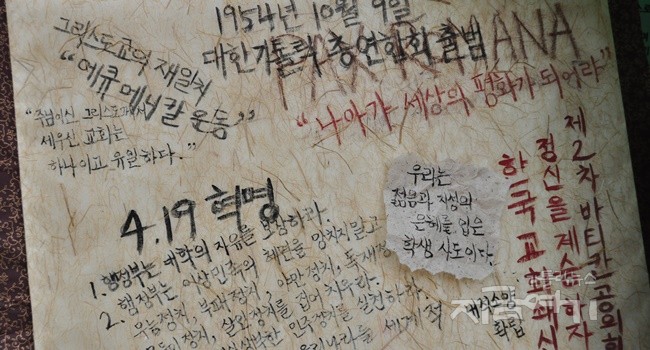 1954년 10월 9일
대한가톨릭 총연합회 출범
PAX ROMANA
그리스도교의 재일치
"에큐메니칼 운동"
"주님이신 그리스도께서
세우신 교회는
하나이고 유일하다."
"나아가 세상의 평화가 되어라"
제2차 바티칸 공의회
정신을 계승하자
한국교회
우리는
젊음과 지성의
은혜를 입은
학생 사도이다.
4.19 혁명
1. 행정부는 대학의 자유를 보장하라.
2. 행정부는 이상 민족의 체면을 망치지 말고
무능정치, 부패정치, 야만정치, 독재정
정치, 살인정치를 집어치워라.
민주정치를 실현하라.
우리나라를 세계적
대식소맹
황탑
뉴스
지금여기